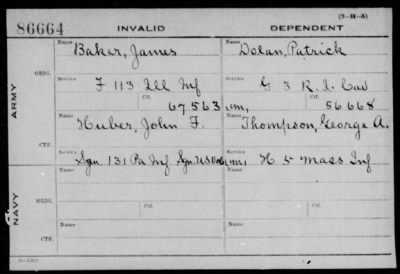 (3-11-5)
86664 INVALID DEPENDENT
Name Name
Baker, James Dolan, Patrick
ORIG. Service Service
F 113 Ill Inf G 3 R.I. Cav
Ctf. Ctf.
67563 56668
ARMY
Name Name
Huber, John F. Thompson, George A.
CTF. Service Service
Sgn. 131 Pa Inf H 5 Mass Inf
Name Name
NAVY
ORIG. Service Service
Ctf. Ctf.
Name Name
CTF. Service Service